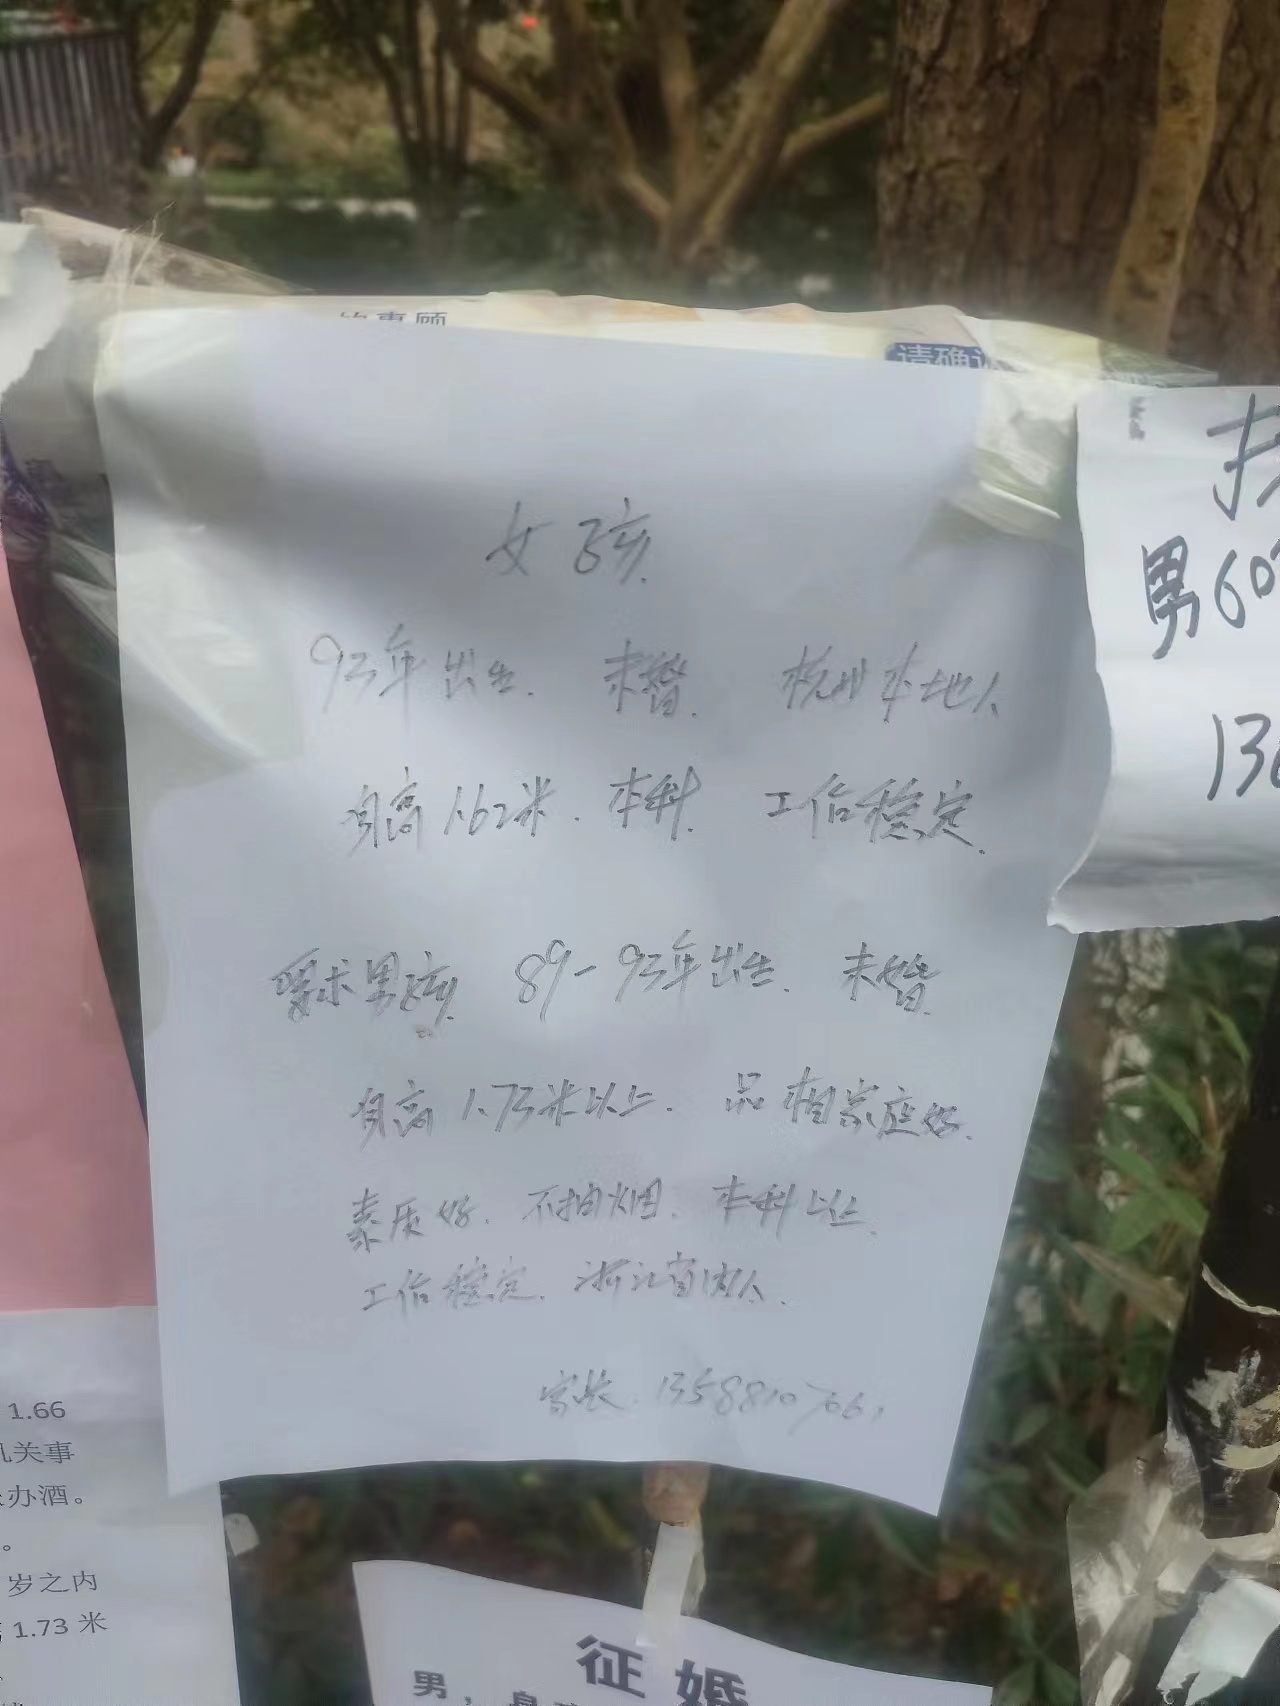 的惠顾
请确认
女孩.
93年出生. 未婚. 杭州本地人
身高1.62米. 本科. 工作稳定.
要求男孩. 89-93年出生. 未婚.
身高1.73米以上. 品相家庭好.
素质好. 不抽烟. 本科以上.
工作稳定. 浙江省内人.
家长.
男60
136
1.66
机关事
办酒。
岁之内
1.73 米
征婚
男，身